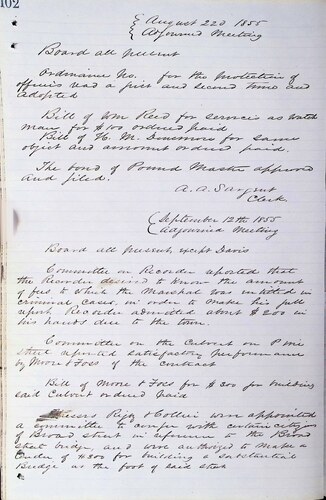 102
August 22d 1855
Adjourned Meeting
Board all present
Ordinance No. for the protection of
officers read a first and second time and
adopted
Bill of Wm Reed for services as watch
man for $100 ordered paid
Bill of H. M. Dinsmore for same
object and amount ordered paid.
The bond of Pound Master approved
and filed.
A. A. Sargent
Clerk
September 12th 1855
Adjourned Meeting
Board all present, except Davis
Committee on Recorder reported that
the Recorder desired to know the amount
of fees to which the Marshal was entitled in
criminal cases, in order to make his full
report. Recorder admitted about $200 in
his hands due to the town.
Committee on the Culvert on Pine
street reported satisfactory performance
by Moore & Foss of the contract
Bill of Moore & Foss for $300 for building
said Culvert ordered paid
Rigg & Collier were appointed
a committee to confer with certain citizens
of Broad street in reference to the Broad
street bridge, and were authorized to make a
order of $800 for building a substantial
Bridge at the foot of said street